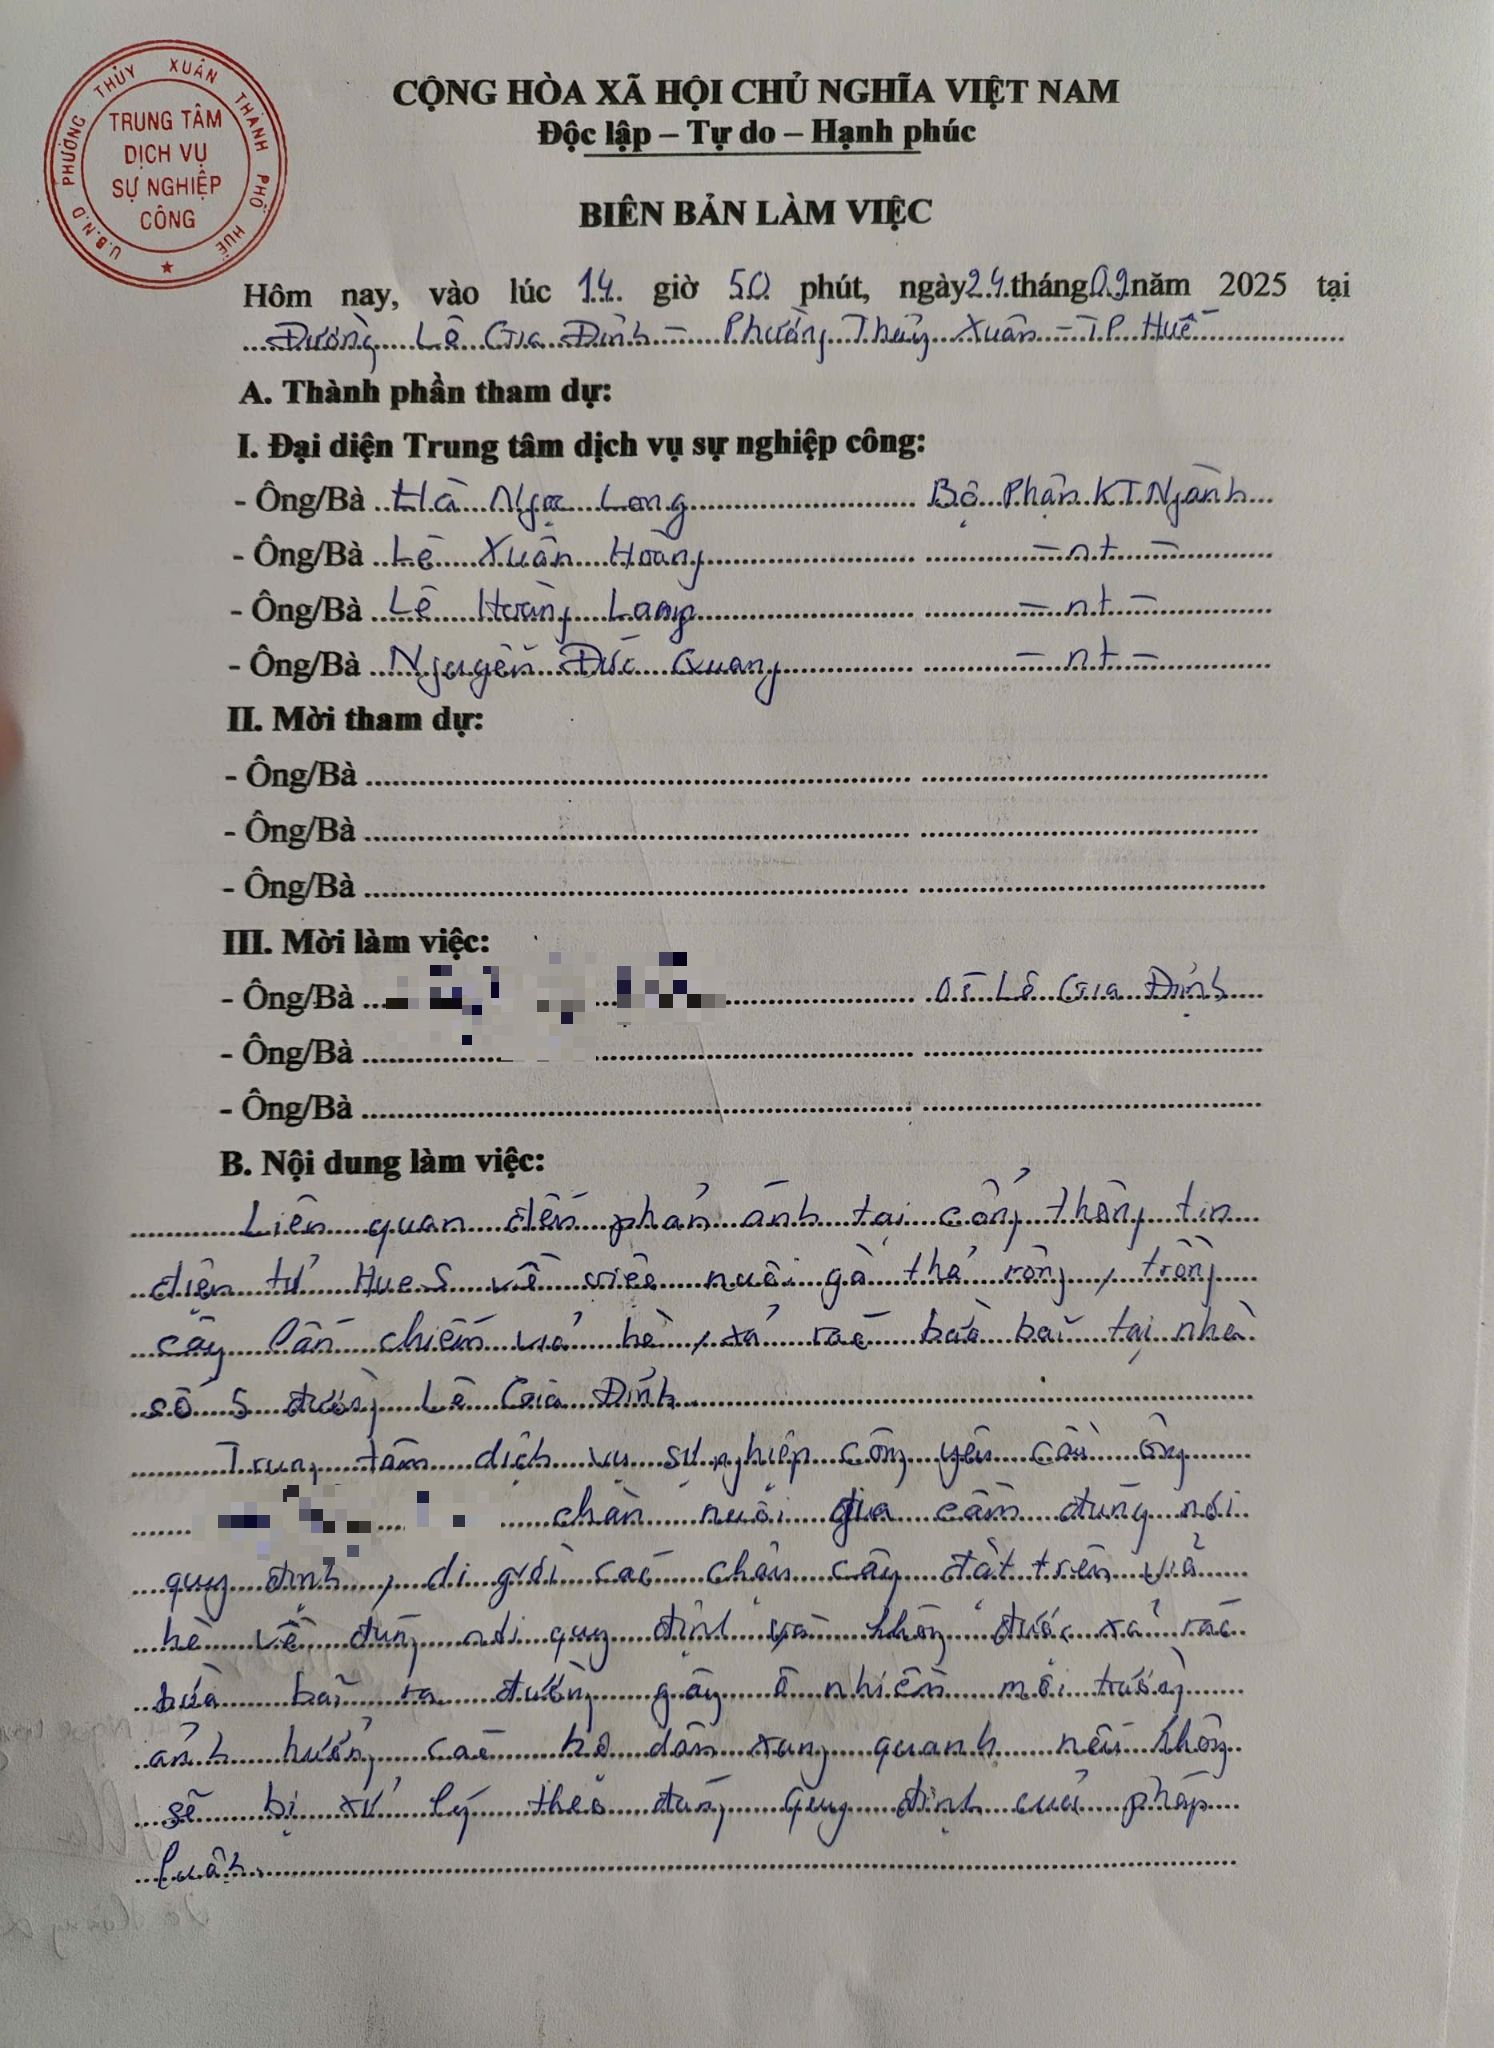 U.B.N.D PHƯỜNG THỦY XUÂN THÀNH PHỐ HUẾ
TRUNG TÂM
DỊCH VỤ
SỰ NGHIỆP
CÔNG
CỘNG HÒA XÃ HỘI CHỦ NGHĨA VIỆT NAM
Độc lập – Tự do – Hạnh phúc
BIÊN BẢN LÀM VIỆC
Hôm nay, vào lúc 14 giờ 50 phút, ngày 24 tháng 09 năm 2025 tại
Đường Lê Gia Đỉnh - Phường Thủy Xuân - TP. Huế
A. Thành phần tham dự:
I. Đại diện Trung tâm dịch vụ sự nghiệp công:
- Ông/Bà Hà Ngọc Long Bộ Phận KT Ngành
- Ông/Bà Lê Xuân Hoàng - nt -
- Ông/Bà Lê Hoàng Long - nt -
- Ông/Bà Nguyễn Đức Quang - nt -
II. Mời tham dự:
- Ông/Bà
- Ông/Bà
- Ông/Bà
III. Mời làm việc:
- Ông/Bà 05 Lê Gia Đỉnh
- Ông/Bà
- Ông/Bà
B. Nội dung làm việc:
Liên quan đến phản ánh tại cổng thông tin
điện tử Hue S về việc nuôi gà thả rông, trồng
cây lấn chiếm vỉa hè, xả rác bừa bãi tại nhà
số 5 đường Lê Gia Đỉnh
Trung tâm dịch vụ sự nghiệp công yêu cầu ông
chăn nuôi gia cầm đúng nơi
quy định, di dời các chậu cây đặt trên vỉa
hè về đúng nơi quy định và không được xả rác
bừa bãi ra đường gây ô nhiễm môi trường
ảnh hưởng các hộ dân xung quanh nếu không
sẽ bị xử lý theo đúng quy định của pháp
luật.